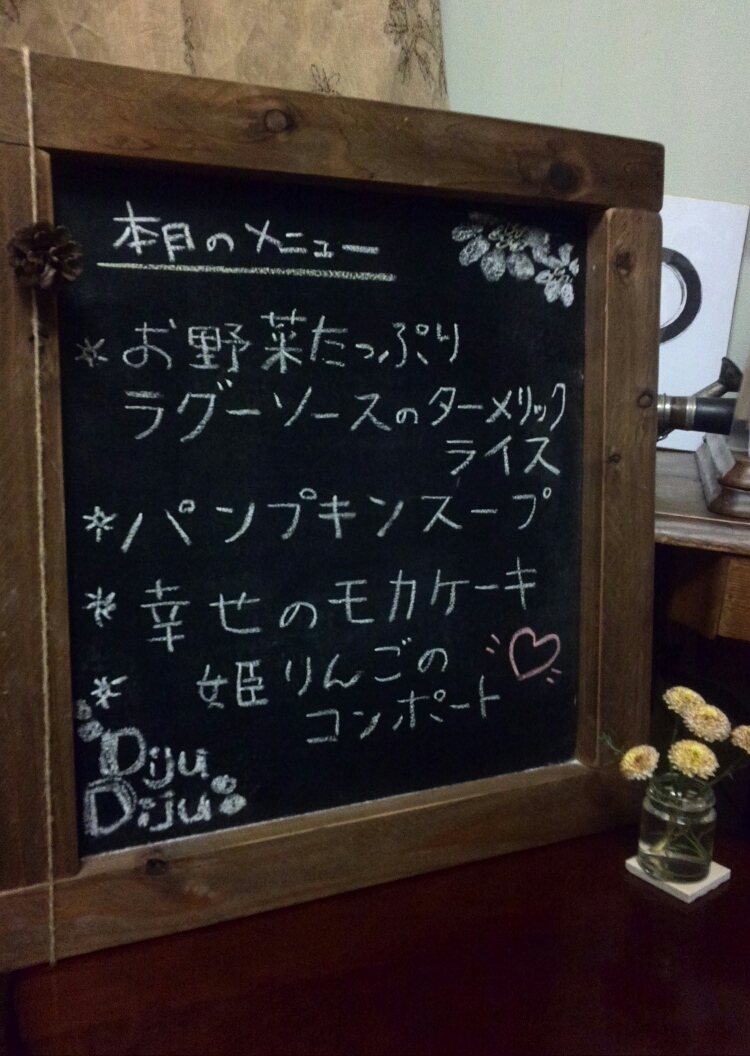 本日のメニュー
* お野菜たっぷり
ラグーソースのターメリック
ライス
* パンプキンスープ
* 幸せのモカケーキ
* 姫りんごの
コンポート
Diju
Diju